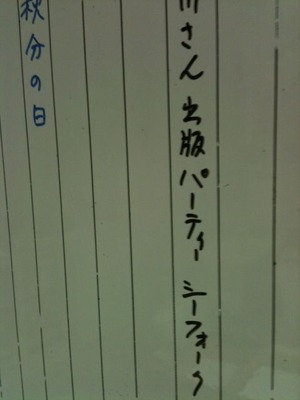 川さん 出版パーティー シーフォーク
秋分の日